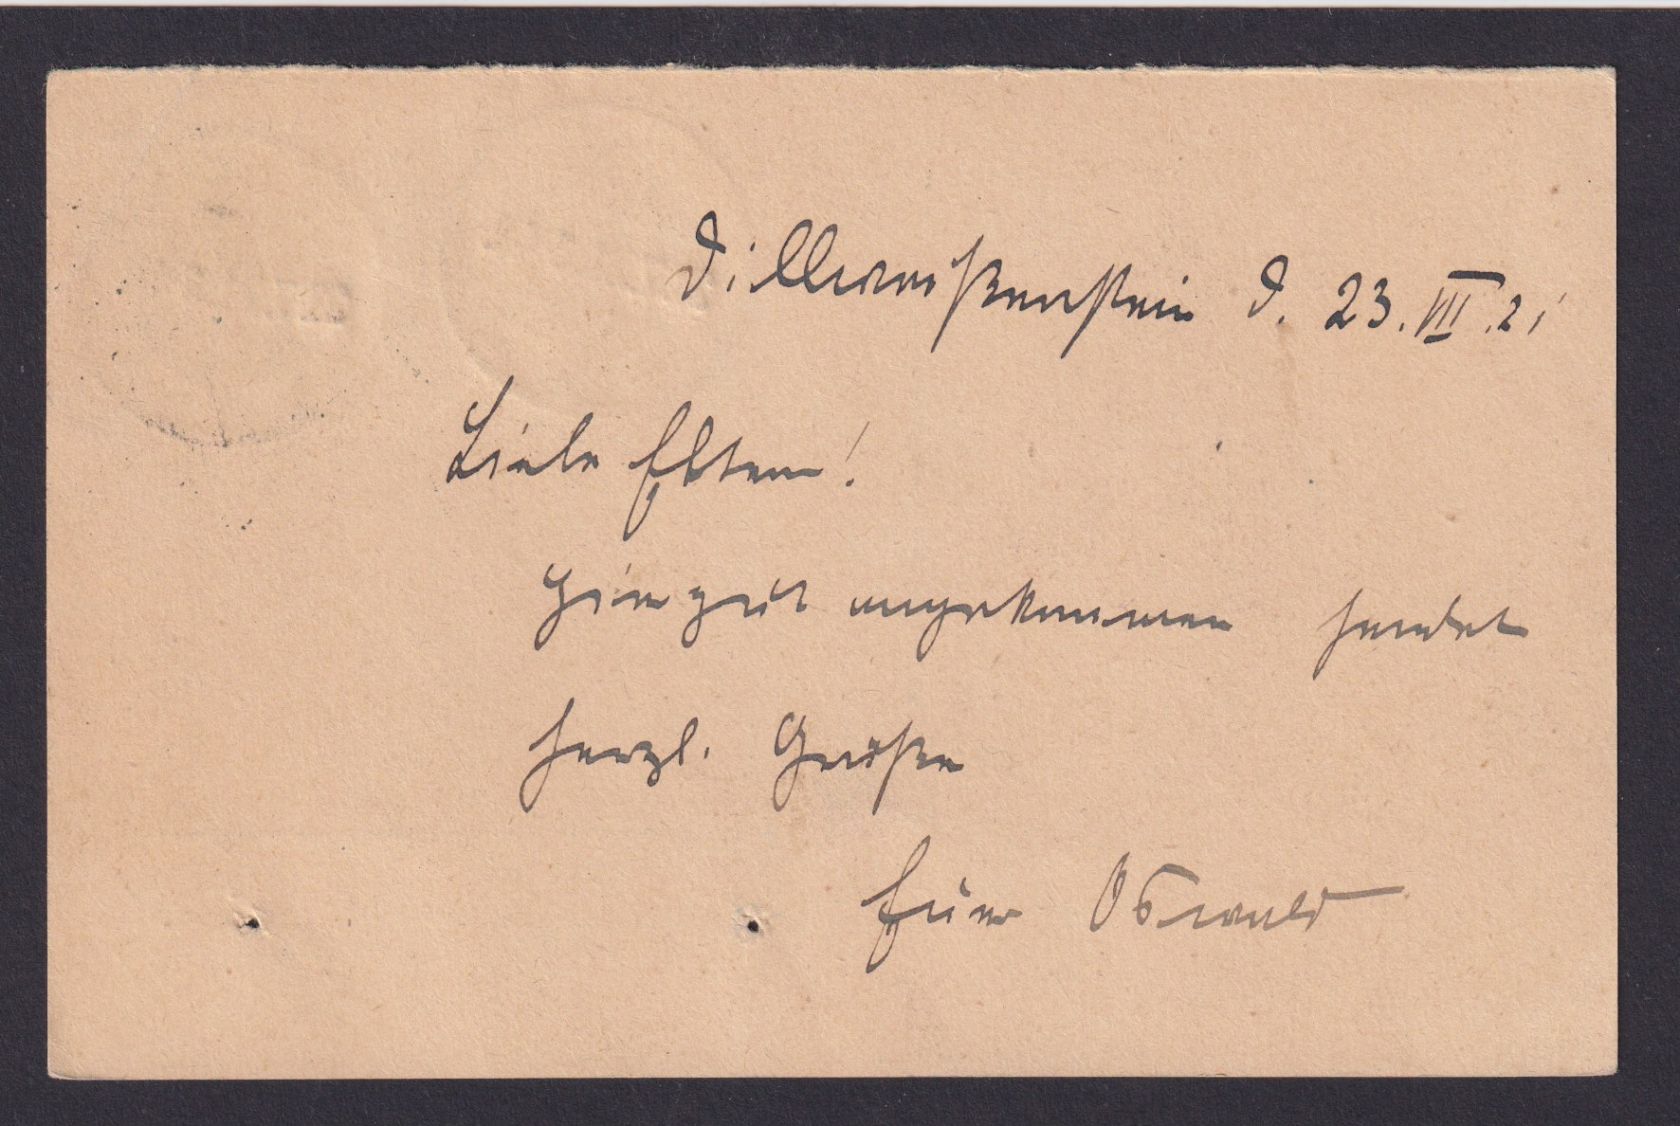 Dillweißenstein d. 23. VII. 21
Liebe Eltern!
Hier gut angekommen sendet
herzl. Grüße
Euer Oswald